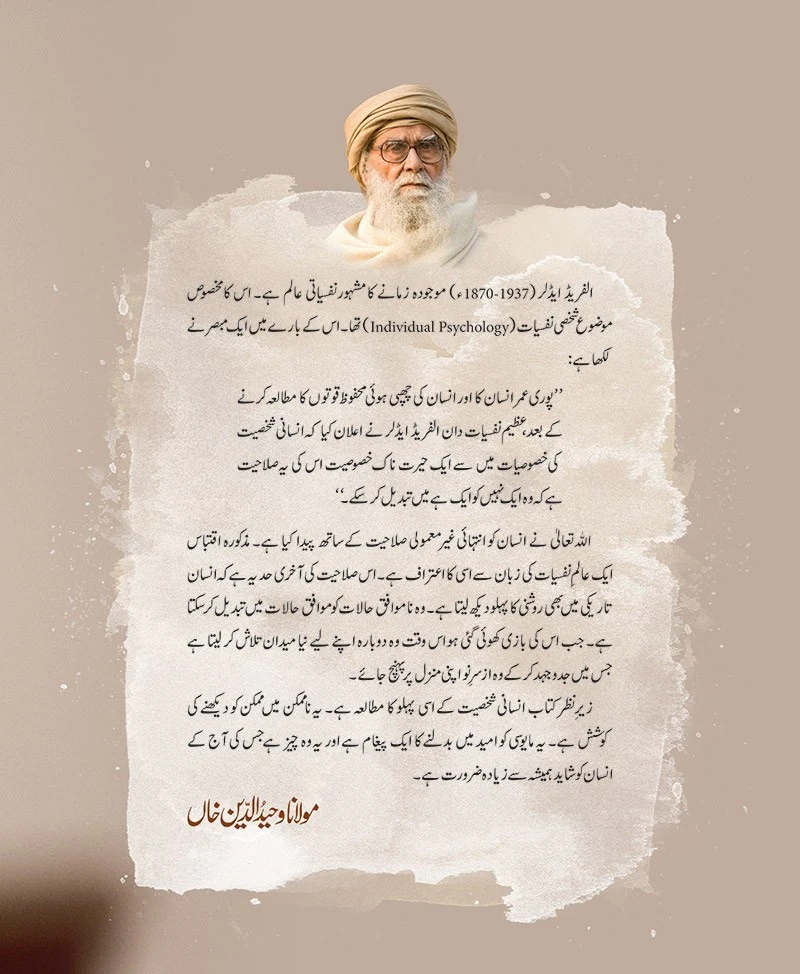 الفریڈ ایڈلر (1937-1870ء) موجودہ زمانے کا مشہور نفسیاتی عالم ہے۔ اس کا مخصوص
موضوع شخصی نفسیات (Individual Psychology) تھا۔ اس کے بارے میں ایک مبصر نے
لکھا ہے:
’’پوری عمر انسان کا اور انسان کی چھپی ہوئی محفوظ قوتوں کا مطالعہ کرنے
کے بعد، عظیم نفسیات داں الفریڈ ایڈلر نے اعلان کیا کہ انسانی شخصیت
کی خصوصیات میں سے ایک حیرت ناک خصوصیت اس کی یہ صلاحیت
ہے کہ وہ ایک نہیں کو ایک ہے میں تبدیل کر سکے۔‘‘
اللہ تعالیٰ نے انسان کو انتہائی غیر معمولی صلاحیت کے ساتھ پیدا کیا ہے۔ مذکورہ اقتباس
ایک عالمِ نفسیات کی زبان سے اسی کا اعتراف ہے۔ اس صلاحیت کی آخری حد یہ ہے کہ انسان
تاریکی میں بھی روشنی کا پہلو دیکھ لیتا ہے۔ وہ ناموافق حالات کو موافق حالات میں تبدیل کر سکتا
ہے۔ جب اس کی بازی کھوئی گئی ہو اس وقت وہ دوبارہ اپنے لیے نیا میدان تلاش کر لیتا ہے
جس میں جدوجہد کر کے وہ از سرِ نو اپنی منزل پر پہنچ جائے۔
زیرِ نظر کتاب انسانی شخصیت کے اسی پہلو کا مطالعہ ہے۔ یہ ناممکن میں ممکن کو دیکھنے کی
کوشش ہے۔ یہ مایوسی کو امید میں بدلنے کا ایک پیغام ہے اور یہ وہ چیز ہے جس کی آج کے
انسان کو شاید ہمیشہ سے زیادہ ضرورت ہے۔
مولانا وحیدُالدّین خاں